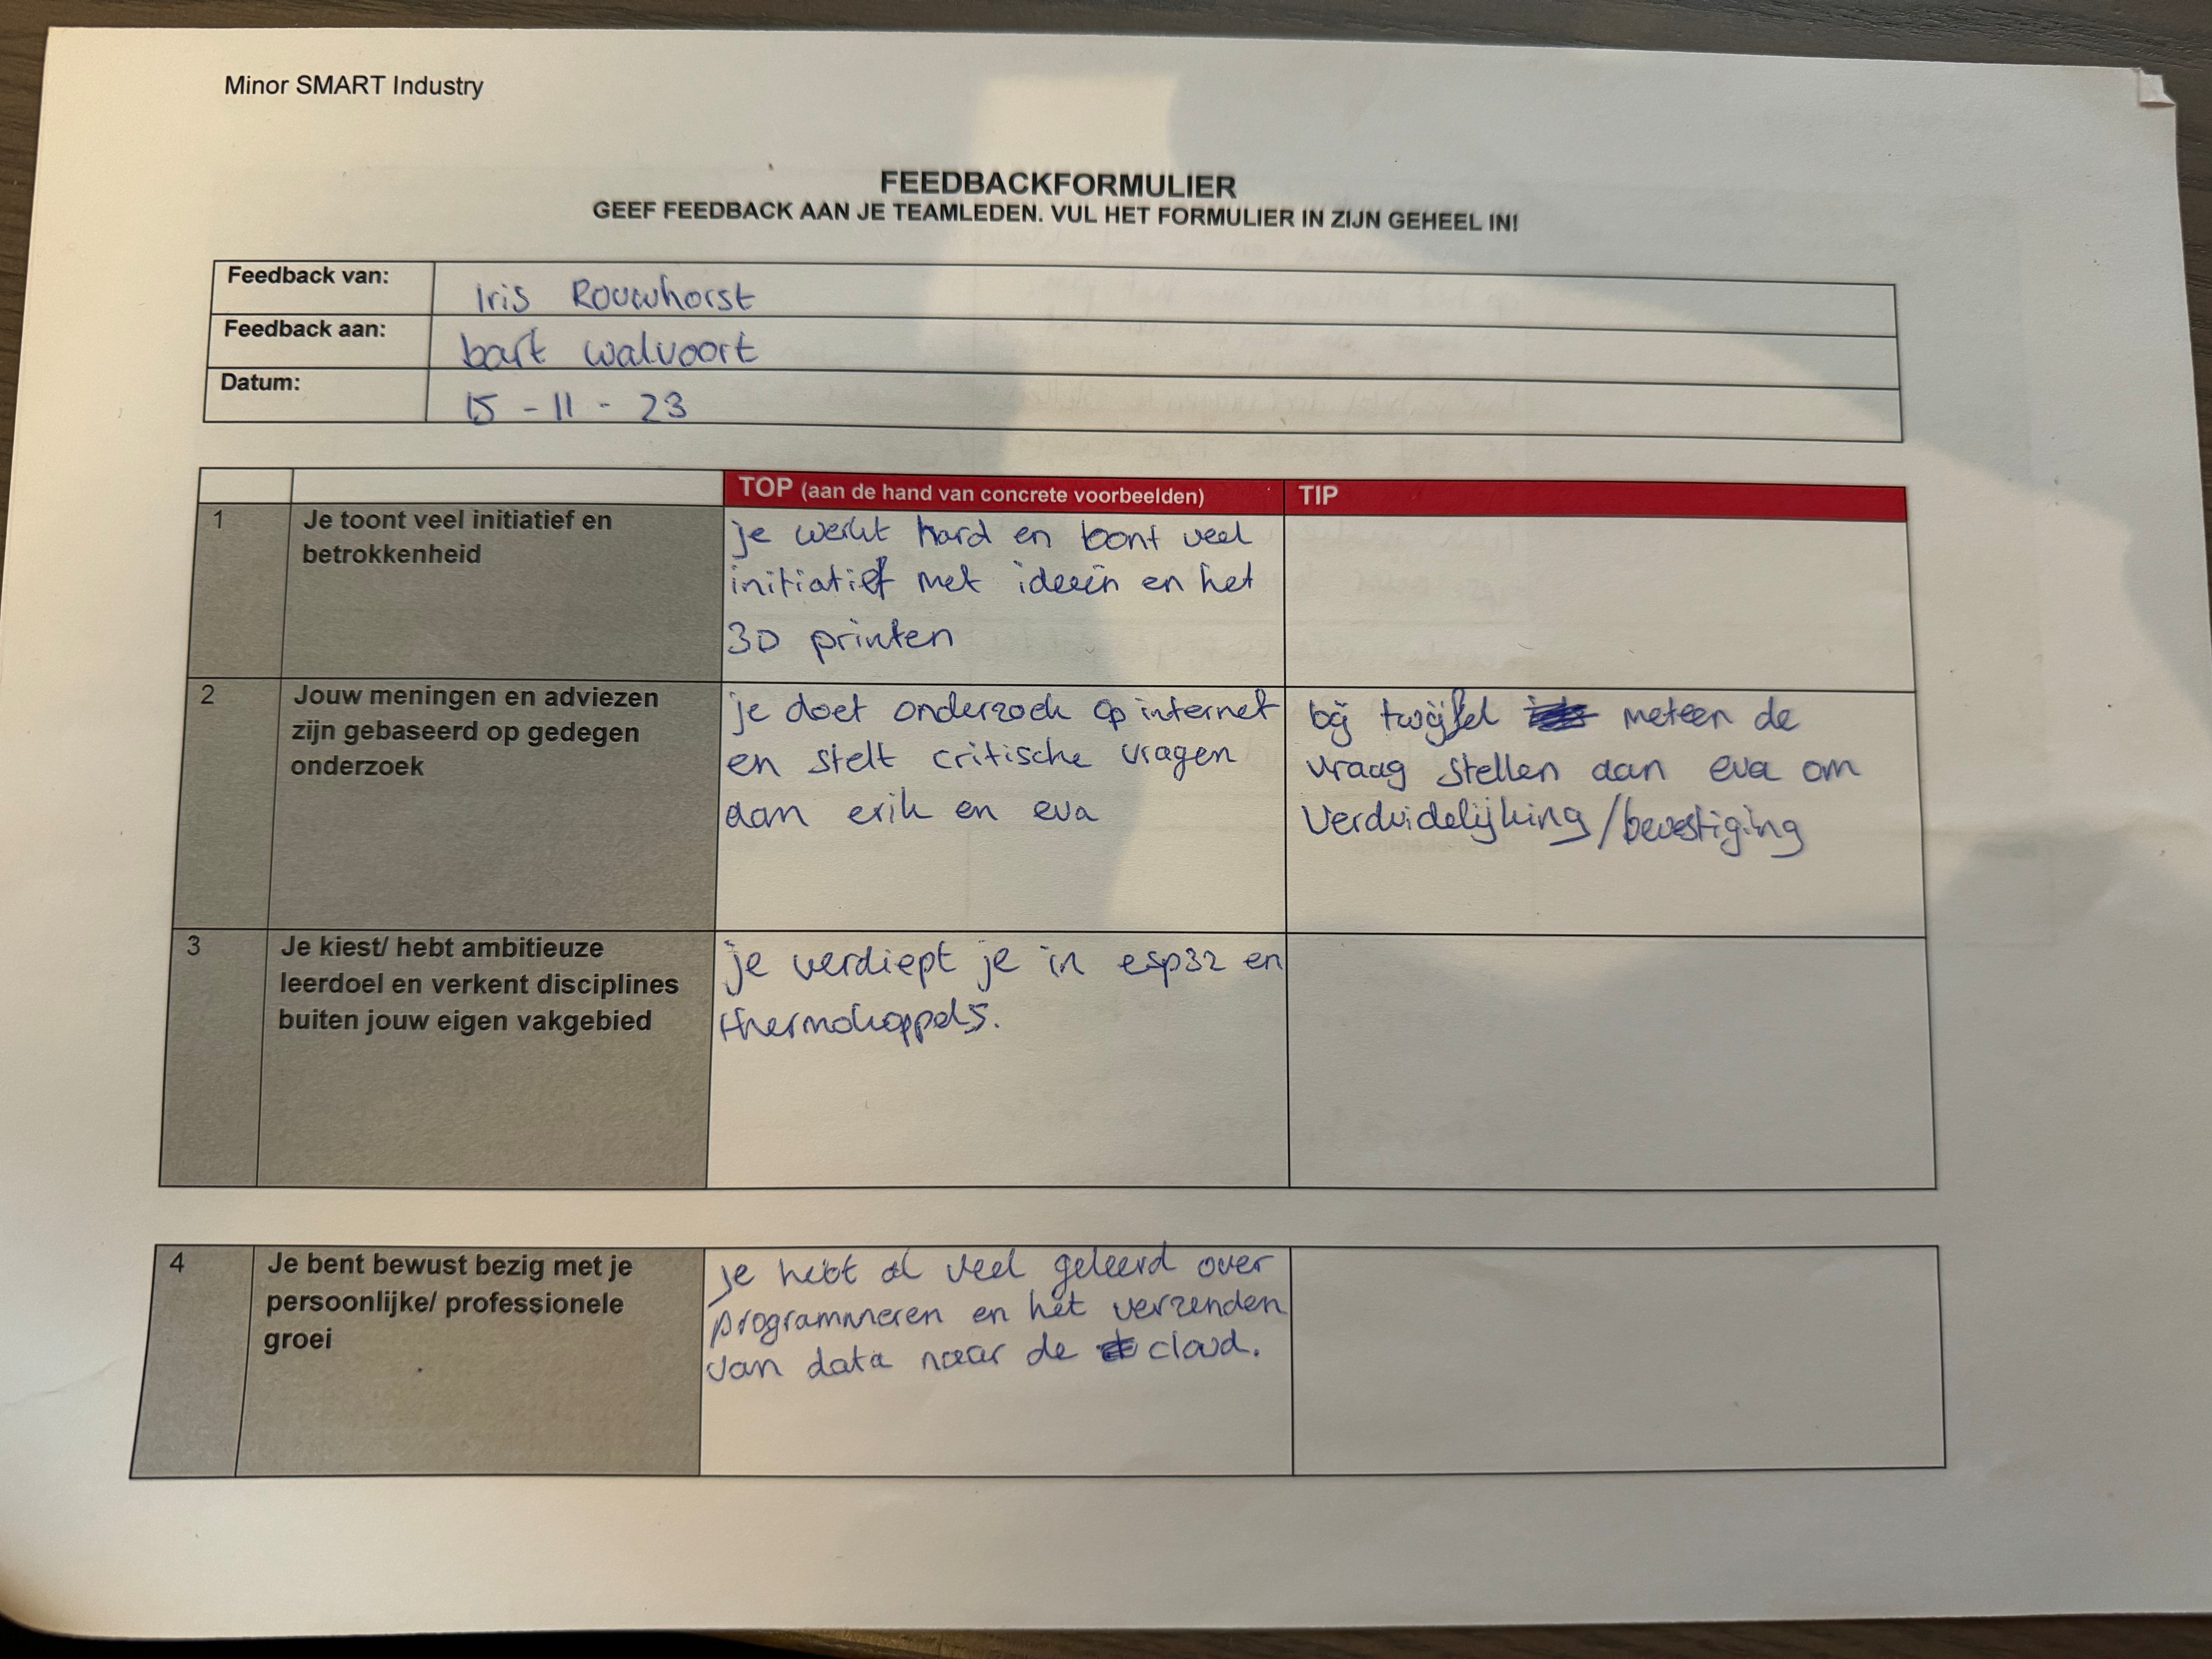 Minor SMART Industry
FEEDBACKFORMULIER
GEEF FEEDBACK AAN JE TEAMLEDEN. VUL HET FORMULIER IN ZIJN GEHEEL IN!
Feedback van: Iris Rouwhorst
Feedback aan: bart walvoort
Datum: 15 - 11 - 23
TOP (aan de hand van concrete voorbeelden) TIP
1 Je toont veel initiatief en
betrokkenheid
je werkt hard en toont veel
initiatief met ideeën en het
3D printen
2 Jouw meningen en adviezen
zijn gebaseerd op gedegen
onderzoek
je doet onderzoek op internet
en stelt critische vragen
aan erik en eva
bij twijfel meteen de
vraag stellen aan eva om
Verduidelijking/bevestiging
3 Je kiest/ hebt ambitieuze
leerdoel en verkent disciplines
buiten jouw eigen vakgebied
je verdiept je in esp32 en
thermokoppels.
4 Je bent bewust bezig met je
persoonlijke/ professionele
groei
Je hebt al veel geleerd over
programmeren en het verzenden
van data naar de cloud.